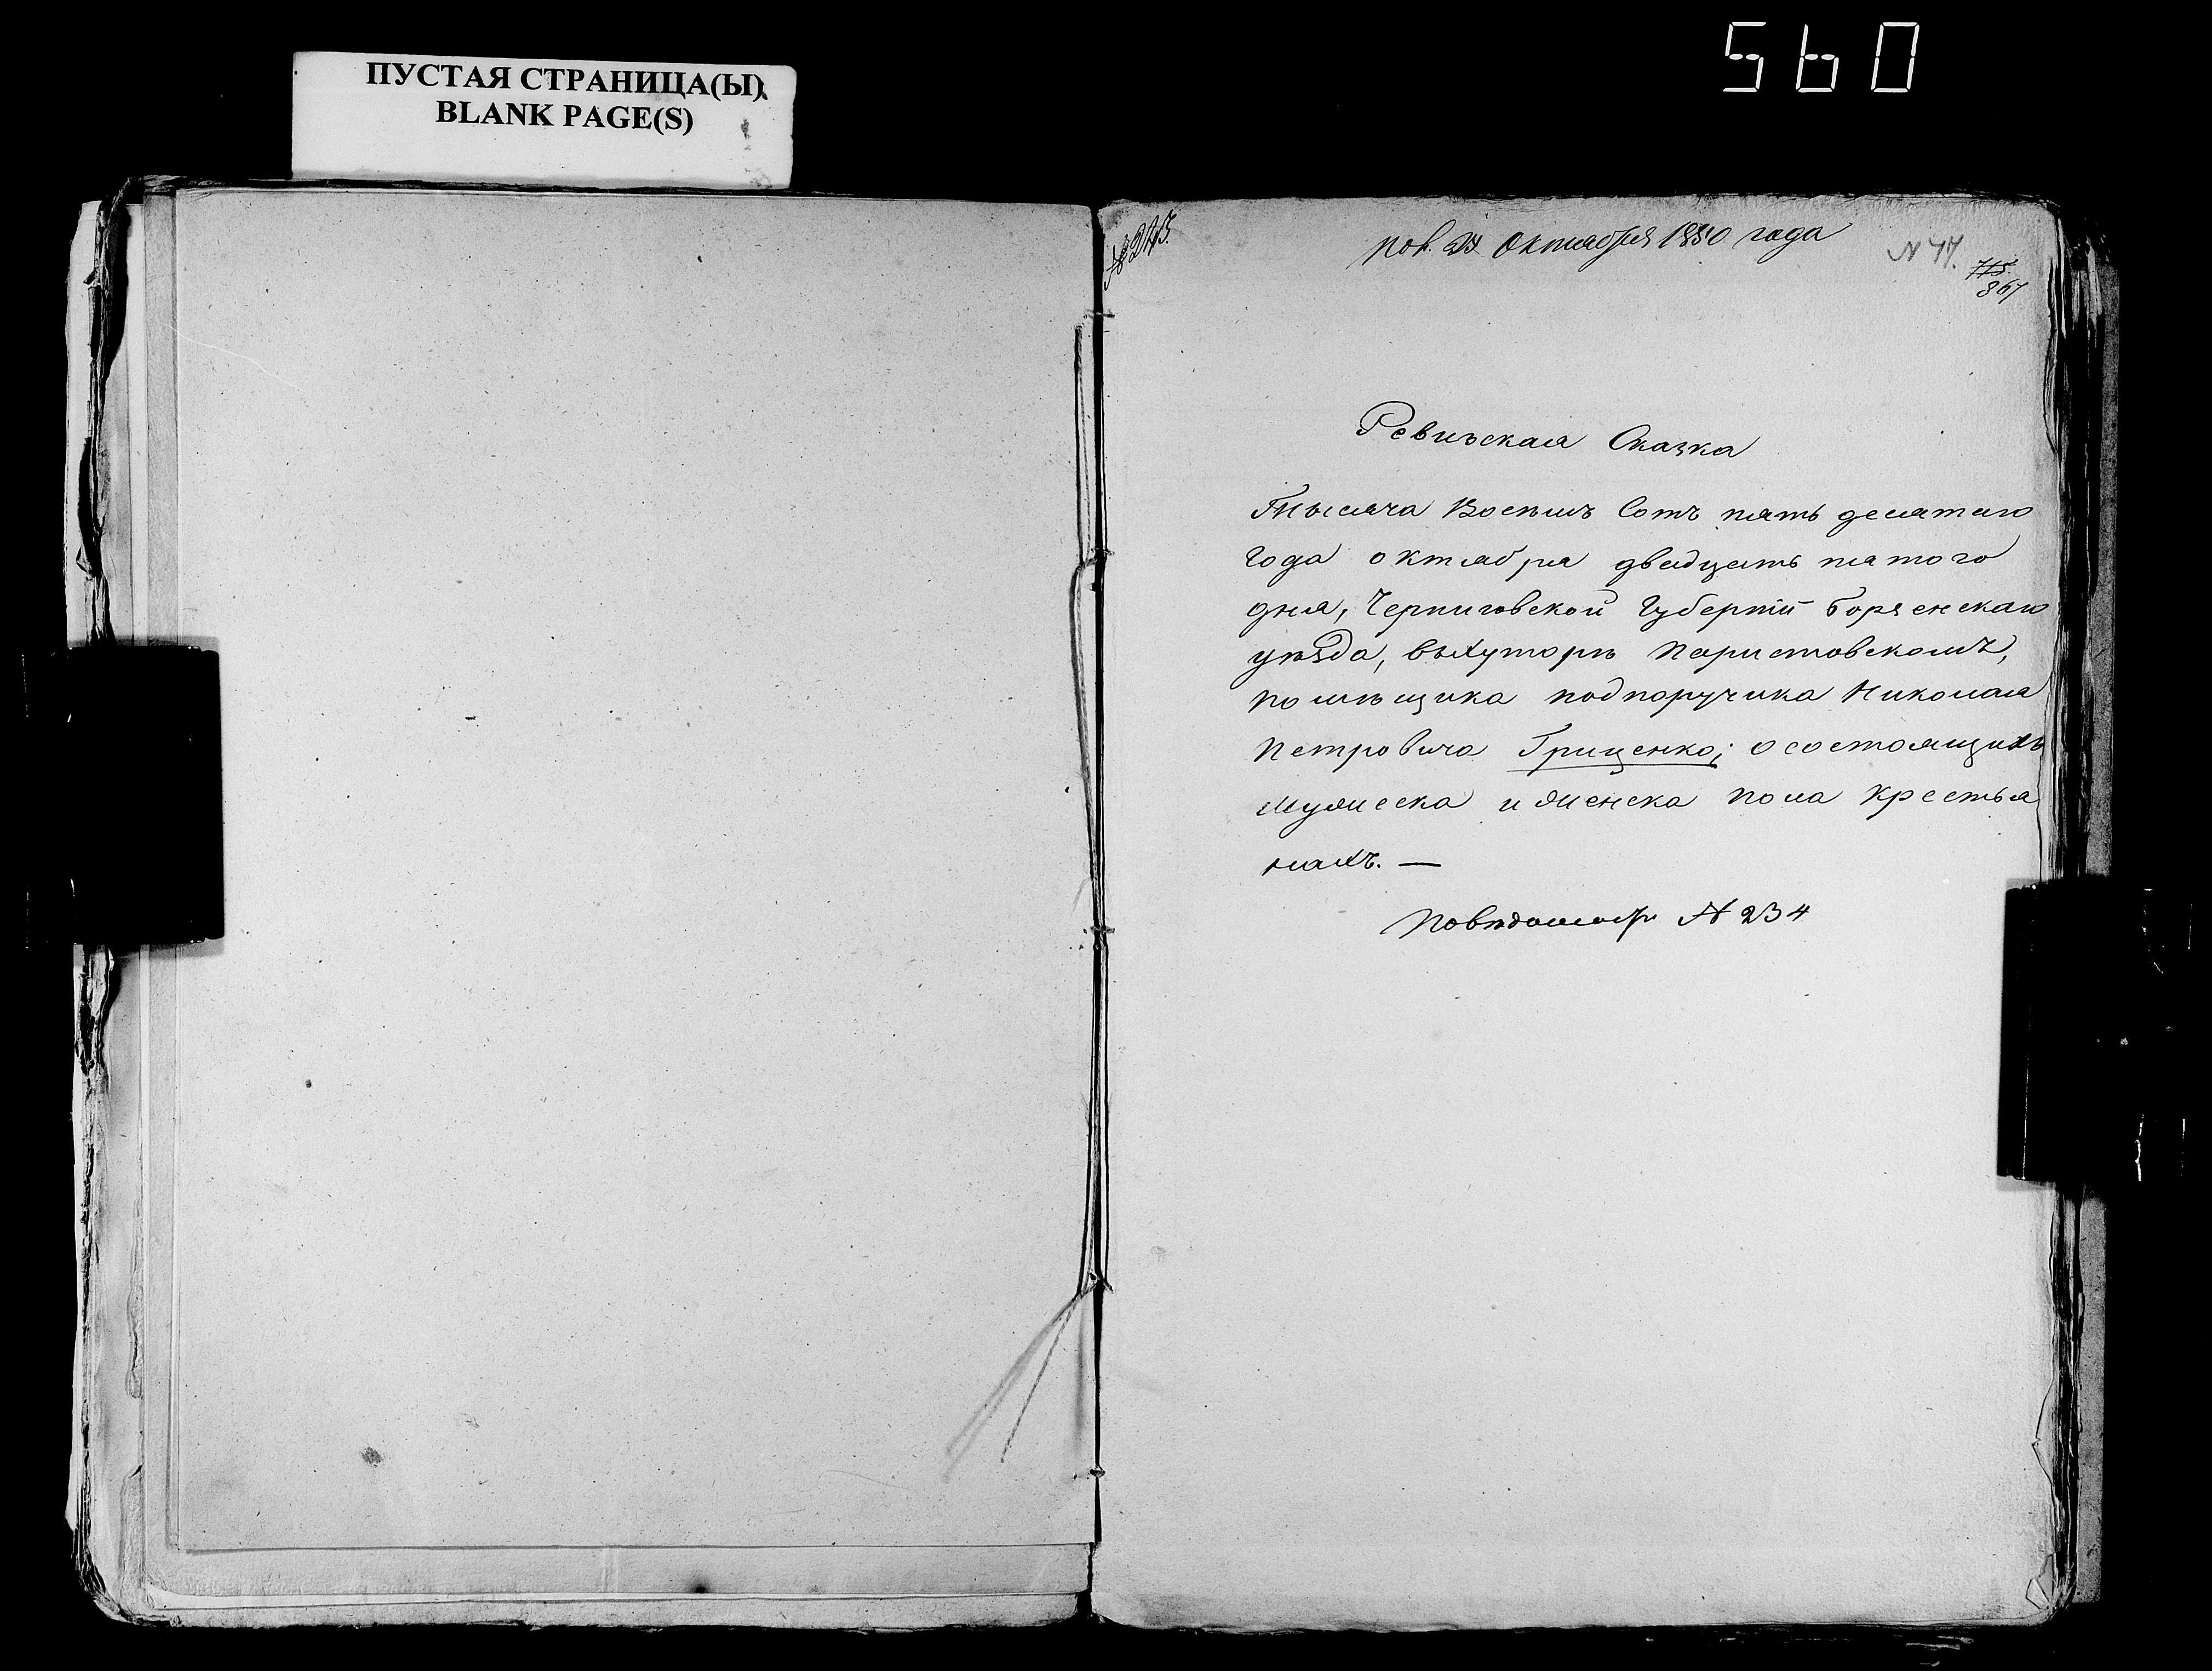 560
ПУСТАЯ СТРАНИЦА(Ы)
BLANK PAGE(S)
Октября 1850 года
N 44.
715.
867
Ревизская Сказка
Тысяча Восемь Сотъ пять десятаго
года октября двадцать пятого
дня, Черниговской Губерніи Борзенскаго
уѣзда, въ хуторѣ Паристовскомъ,
помѣщика подпоручика Николая
Петровича Гриценко; о состоящихъ
мужеска и женска пола крестья
нахъ. —
По вѣдомости № 234